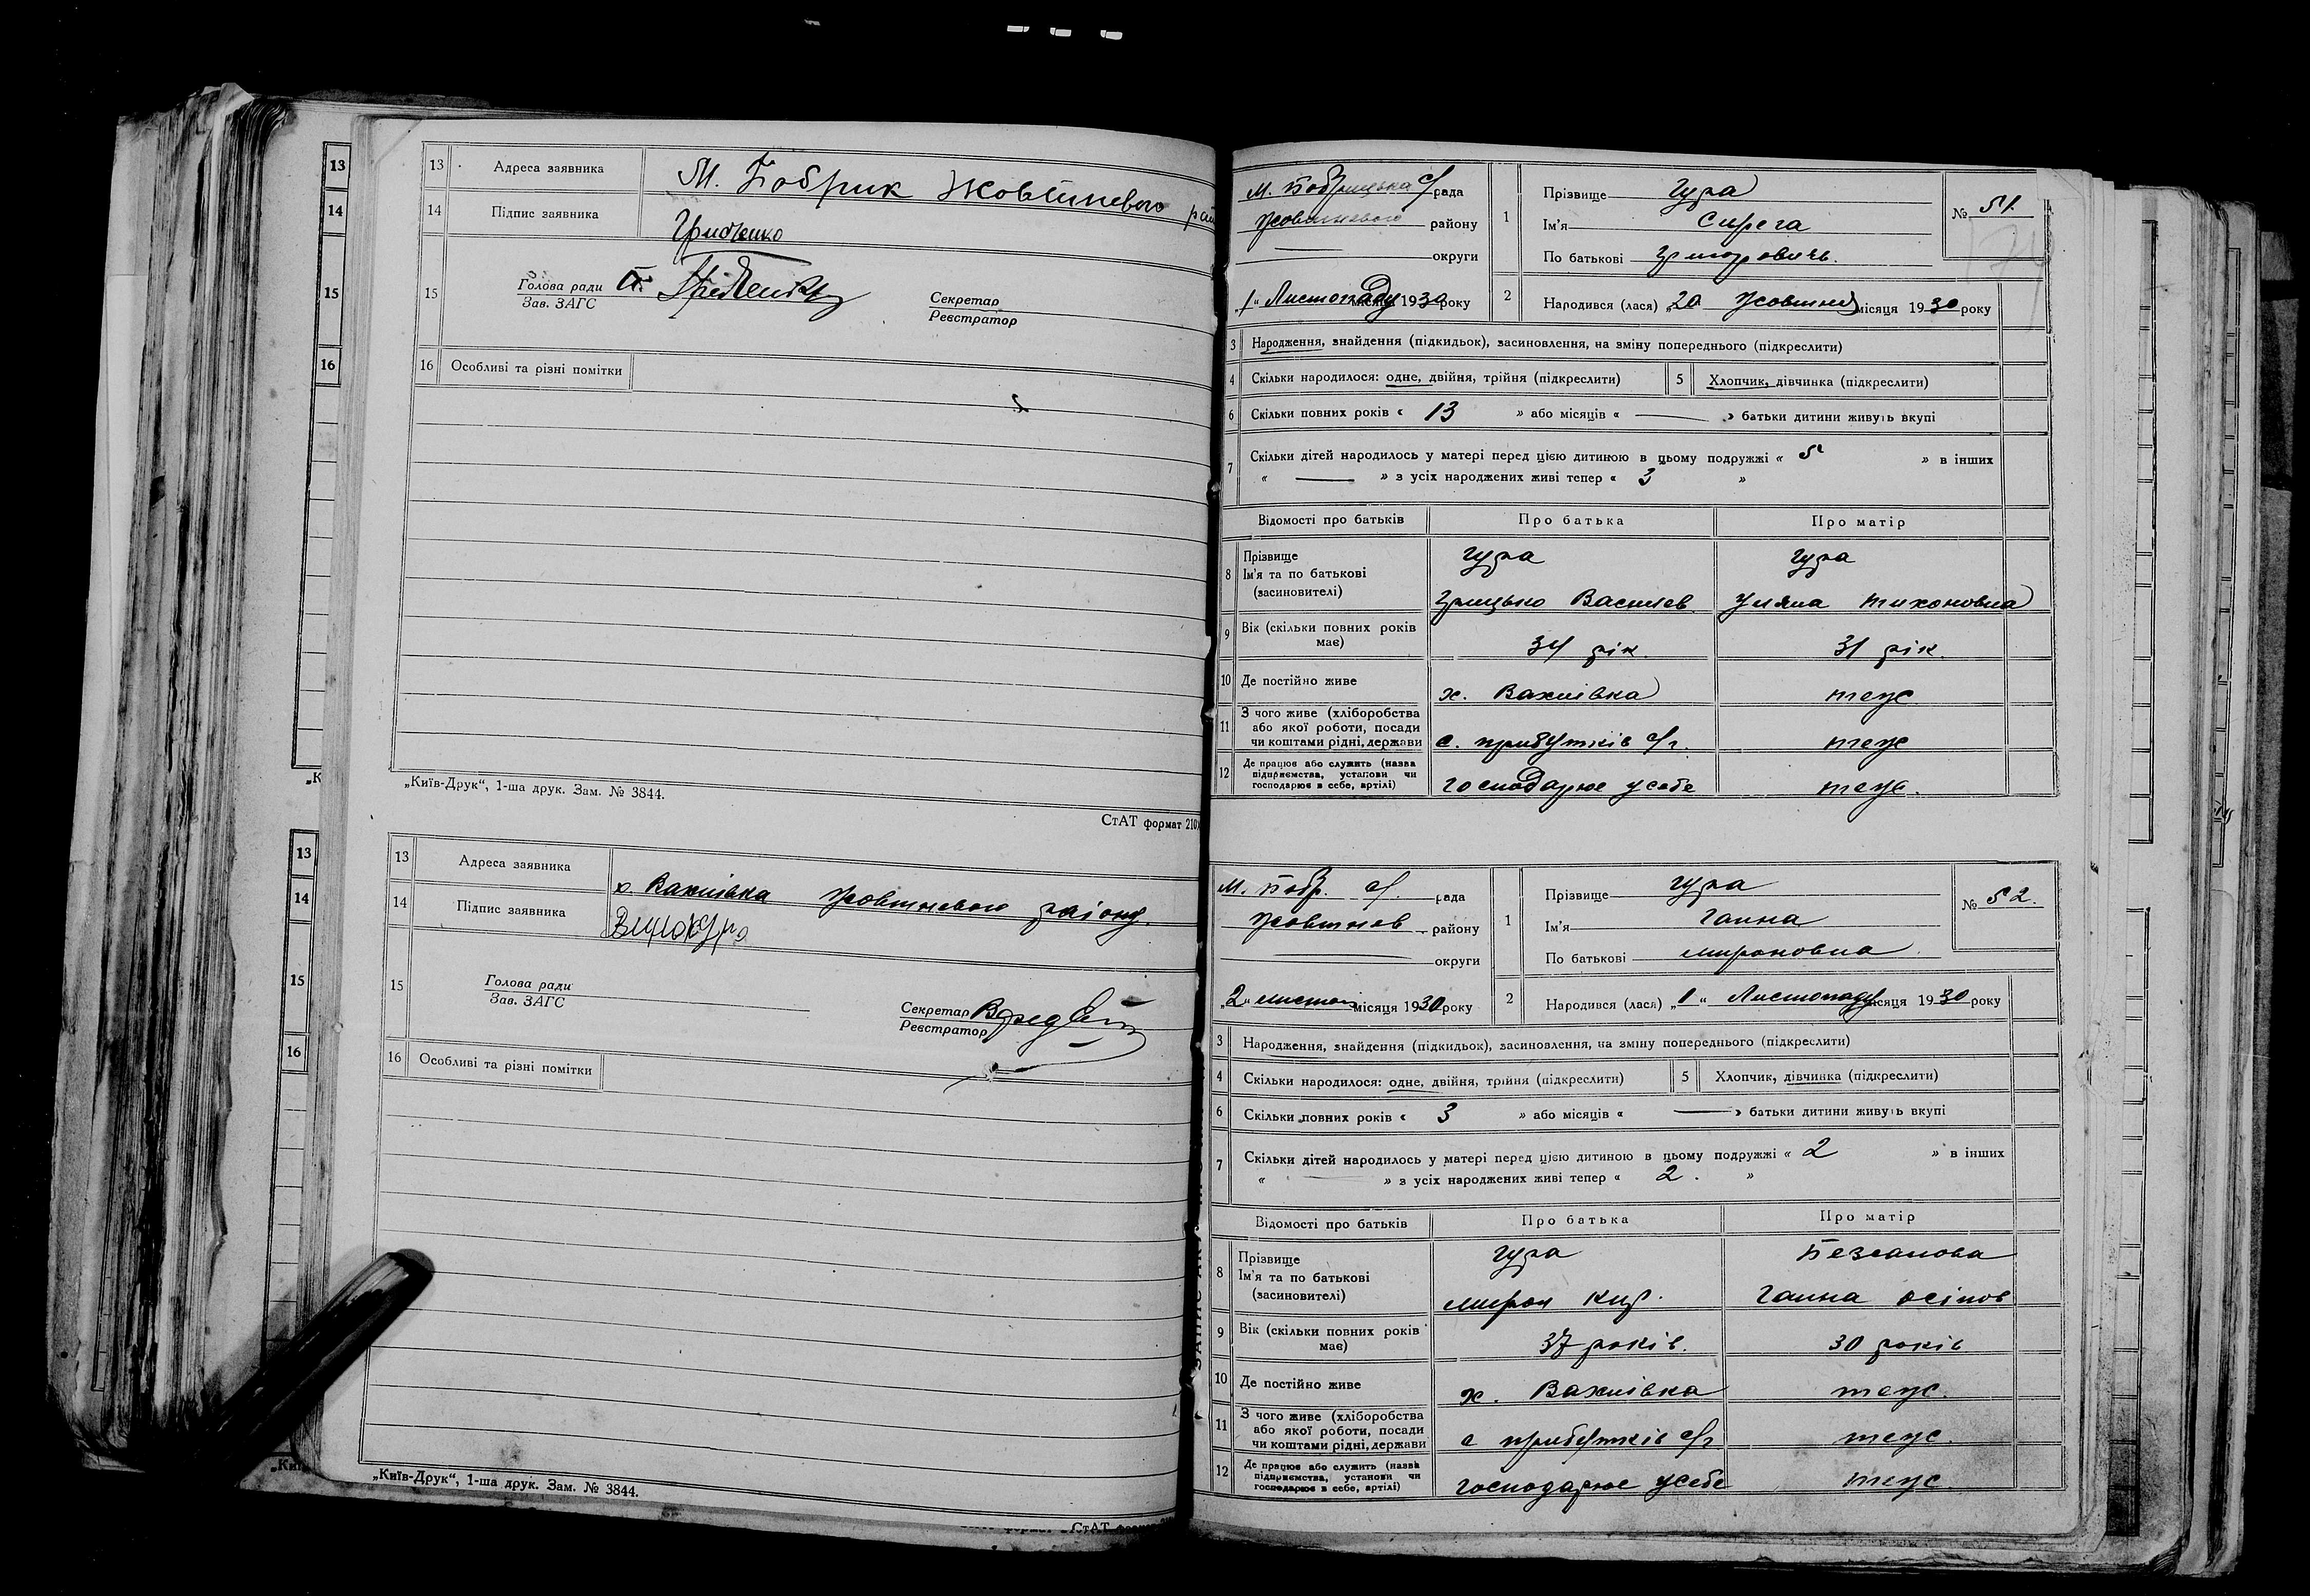 13 Адреса заявника М. Бобрик Жовтневого рай
14 Підпис заявника Грибченко
15 Голова ради
Зав. ЗАГС
Секретар
Реєстратор
16 Особливі та різні помітки
„Київ-Друк“, 1-ша друк. Зам. № 3844.
СтАТ формат 210
13 Адреса заявника х. Вахнівка Жовтневого району.
14 Підпис заявника
15 Голова ради
Зав. ЗАГС
Секретар
Реєстратор
16 Особливі та різні помітки
„Київ-Друк“, 1-ша друк. Зам. № 3844.
СтАТ формат
М. Бобрицька с/рада
Жовтневого району
округи
„1“ Листопаду місяця 1930 року
1 Прізвище Гура
Ім'я Сирега
По батькові Григорович.
№ 51.
2 Народився (лася) „20 Жовтня місяця 1930 року
3 Народження, знайдення (підкидьок), засиновлення, на зміну попереднього (підкреслити)
4 Скільки народилося: одне, двійня, трійня (підкреслити) 5 Хлопчик, дівчинка (підкреслити)
6 Скільки повних років « 13 » або місяців « — » батьки дитини живуть вкупі
7 Скільки дітей народилось у матері перед цією дитиною в цьому подружжі « 5 » в інших
« — » з усіх народжених живі тепер « 3 »
Відомості про батьків Про батька Про матір
8 Прізвище Гура Гура
Ім'я та по батькові
(засиновителі) Грицько Василев. Уляна Тихоновна
9 Вік (скільки повних років має) 34 рік. 31 рік.
10 Де постійно живе х. Вахнівка теж
11 З чого живе (хліборобства
або якої роботи, посади
чи коштами рідні, держави с. прибутків с/г. теж
12 Де працює або служить (назва
підприємства, установи чи
господарює в себе, артілі) господарює у себе теж.
М. Бобр. с/. рада
Жовтнев району
округи
„2“ листоп місяця 1930 року
1 Прізвище Гура
Ім'я Ганна
По батькові Мироновна
№ 52.
2 Народився (лася) „1“ Листопаду місяця 1930 року
3 Народження, знайдення (підкидьок), засиновлення, на зміну попереднього (підкреслити)
4 Скільки народилося: одне, двійня, трійня (підкреслити) 5 Хлопчик, дівчинка (підкреслити)
6 Скільки повних років « 3 » або місяців « — » батьки дитини живуть вкупі
7 Скільки дітей народилось у матері перед цією дитиною в цьому подружжі « 2 » в інших
« — » з усіх народжених живі тепер « 2. »
Відомості про батьків Про батька Про матір
8 Прізвище Гура
Ім'я та по батькові
(засиновителі) Мирон Кир. Ганна Осіпов
9 Вік (скільки повних років має) 37 років. 30 років
10 Де постійно живе х. Вахнівка теж.
11 З чого живе (хліборобства
або якої роботи, посади
чи коштами рідні, держави с прибутків с/г теж.
12 Де працює або служить (назва
підприємства, установи чи
господарює в себе, артілі) господарює усебе теж.